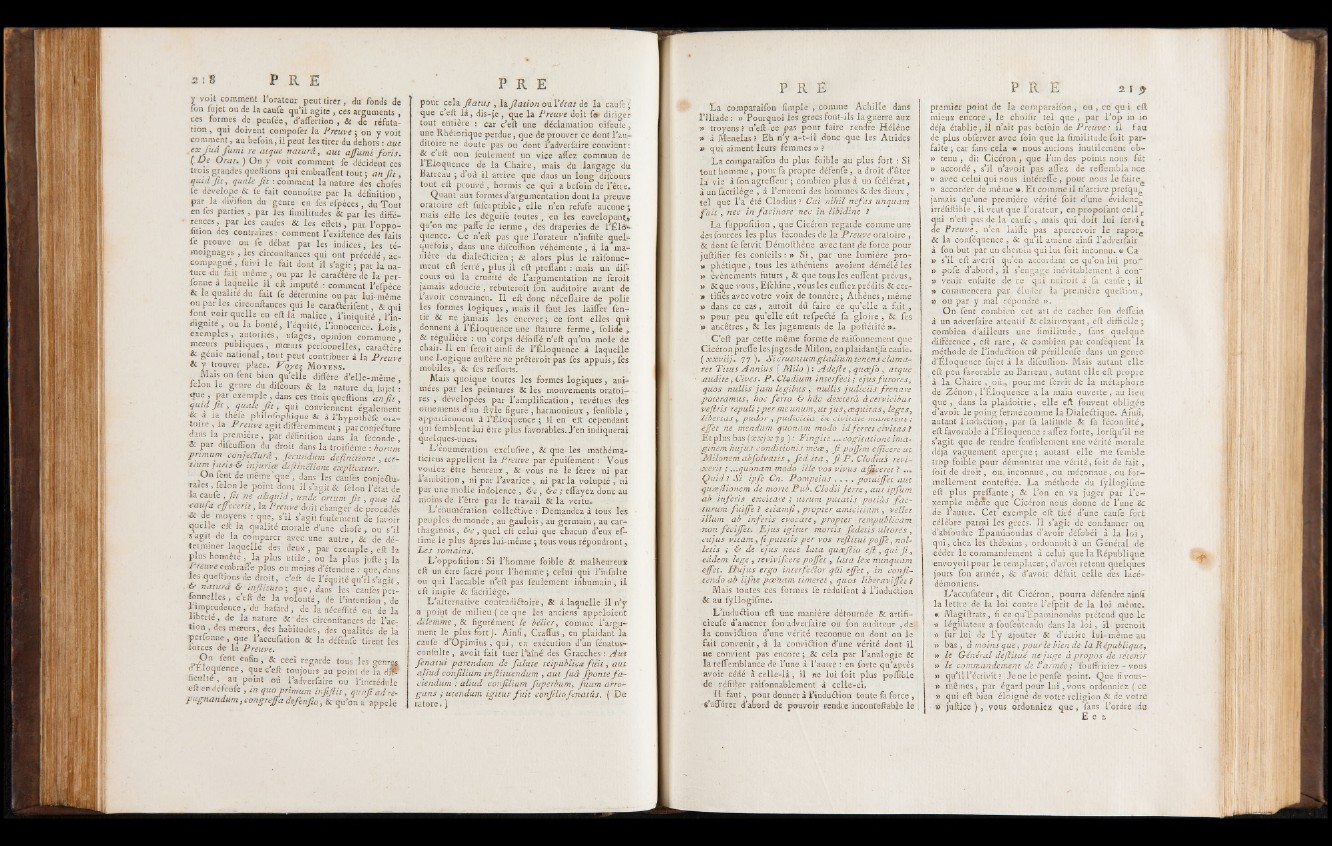 218 P R E
y voit comment l'orateur peut tirer, du fonds de
son sujet ou de la cause qu'il agite, ces arguments,
ces formes de pensée, d'assertion, & de réfuta-
tion, qui doivent composer la Preuve ; on y voit
comment, au besoin, il peut les tirer du dehors : aut
ex sud sumi re atque naturâ, aut assumi foris.
( De Orat. ) On y voit comment se décident ces
trois grandes questions qui embrassent tout ; an sit,
quid sit, quale sit : comment la nature des choses
se dévelope & se fait connoître par la définition,
par la division du genre en ses espèces, du Tout
en ses parties, par les similitudes & par les diffé-
rences, par les causes & les effets, par l'oppo-
sition des contraires : comment l'existence des faits
se prouve ou se débat par les indices, les té-
moignages, les circonstances qui ont précédé, ac-
compagné, suivi le fait dont il s'agit ; par la na-
ture du fait même, ou par le caractère de la per-
sonne à laquelle il est imputé : comment l'espèce
& la qualité du fait se détermine ou par lui-même
ou par les circonstances qui le caractérisent, & qui
font voir quelle en est la malice, l'iniquité, l'in-
dignité, ou la bonté, l'équité, l'innocence. Lois,
exemples, autorités, usages, opinion commune,
mœurs publiques, mœurs personnelles, caractère
& génie national, tout peut contribuer à la Preuve
& y trouver place. Voyez MOYENS.
Mais on sent bien qu'elle diffère d'elle-même,
selon le genre du discours & la nature du sujet :
que, par exemple, dans ces trois questions an sit,
quid sit, quale sit, qui conviennent également
& à la thèse philosophique & à l'hypothèse ora-
toire, la Preuve agit différemment ; par conjecture
dans la première, par définition dans la seconde,
& par discussion du droit dans la troisième : horum
primum conjecturâ, secundum definitione, ter-
tium juris & injuriæ distinctione explicatur.
On sent de même que, dans les causes conjectu-
rales, selon le point dont il s'agit & selon l'état de
la cause, sit ne aliquid, unde ortum sit, quæ id
causa effecerit, la Preuve doit changer de procédés
& de moyens : que, s'il s'agit seulement de savoir
quelle est la qualité morale d'une chose, ou s'il
s'agit de la comparer avec une autre, & de dé-
terminer laquelle des deux, par exemple, est la
plus honnête, la plus utile, ou la plus juste ; la
Preuve embrasse plus ou moins d'étendue : que, dans
les questions de droit, c'est de l'équité qu'il s'agit,
& naturâ & instituto ; que, dans les causes per-
sonnelles, c'est de la volonté, de l'intention, de
l'imprudence, du hasard, de la nécessité ou de la
liberté, de la nature & des circonstances de l'ac-
tion, des mœurs, des habitudes, des qualités de la
personne, que l'accusation & la défense tirent les
forces de la Preuve.
On sent enfin, & ceci regarde tous les genres
d'Éloquence, que c'est toujours au point de la dif-
ficulté, au point où l'adversaire ou l'incrédule
est en défense, in quo primum insistit, quasi ad re-
pugnandum, congressa defensio, & qu'on a appelé
P R E
pour cela status, la station ou l'état de la cause ;
que c'est là, dis-je, que la Preuve doit se diriger
tout entière : car c'est une déclamation oiseuse,
une Rhétorique perdue, que de prouver ce dont l'au-
ditoire ne doute pas ou dont l'adversaire convient :
& c'est non seulement un vice assez commun de
l'Éloquence de la Chaire, mais du langage du
Barreau ; d'où il arrive que dans un long discours
tout est prouvé, hormis ce qui a besoin de l'être.
Quant aux formes d'argumentation dont la preuve
oratoire est susceptible, elle n'en refuse aucune ;
mais elle les déguise toutes, en les envelopant,
qu'on me passe le terme, des draperies de l'Élo-
quence. Ce n'est pas que l'orateur n'insiste quel-
quefois, dans une discussion véhémente, à la ma-
nière du dialecticien ; & alors plus le raisonne-
ment est serré, plus il est pressant : mais un dis-
cours où la crudité de l'argumentation ne seroit
jamais adoucie, rebuteroit son auditoire avant de
l'avoir convaincu. Il est donc nécessaire de polir
les formes logiques, mais il faut les laisser sen-
tir & ne jamais les énerver ; ce sont elles qui
donnent à l'Éloquence une stature ferme, solide,
& régulière : un corps désossé n'est qu'un mole de
chair. Il en seroit ainsi de l'Éloquence à laquelle
une Logique austère ne prêteroit pas ses appuis, ses
mobiles, & ses ressorts.
Mais quoique toutes les formes logiques, ani-
mées par les peintures & les mouvements oratoi-
res, dévelopées par l'amplification, revêtues des
ornements d'un style figuré, harmonieux, sensible,
appartiennent à l'Éloquence ; il en est cependant
qui semblent lui être plus favorables. J'en indiquerai
quelques-unes.
L'énumération exclusive, & que les mathéma-
ticiens appellent la Preuve par épuisement : Vous
voulez être heureux, & vous ne le serez ni par
l'ambition, ni par l'avarice, ni par la volupté, ni
par une molle indolence, &c, &c ; essayez donc au
moins de l'être par le travail & la vertu.
L'énumération collective : Demandez à tous les
peuples du monde, au gaulois, au germain, au car-
thaginois, &c, quel est celui que chacun d'eux es-
time le plus âprès lui-même ; tous vous répondront,
Les romains.
L'opposition : Si l'homme foible & malheureux
est un être sacré pour l'homme ; celui qui l'insulte
ou qui l'accable n'est pas seulement inhumain, il
est impie & sacrilège.
L'alternative contradictoire, & à laquelle il n'y
a point de milieu ( ce que les anciens appeloient
dilemme, & figurément le bélier, comme l'argu-
ment le plus fort ). Ainsi, Crassus, en plaidant la
cause d'Opimius, qui, en exécution d'un sénatus-
consulte, avoit fait tuer l'aîné des Gracches : Aut
senatui parendum de salute reipublicæ fuit, aut
aliud consilium instituendum, aut suâ sponte fa-
ciendum : aliud consilium superbum, suum arro-
gans ; utendum igitur fuit consilio senatûs. ( De
ratore. )
P R E
La comparaison simple, comme Achille dans
l'Iliade : » Pourquoi les grecs font-ils la guerre aux
» troyens ? n'est ce pas pour faire rendre Hélène
» à Menelas ? Eh n'y a-t-il donc que les Atrides
» qui aiment leurs femmes » ?
La comparaison du plus foible au plus fort : Si
tout homme, pour sa propre défense, a droit d'ôter
la vie à son agresseur ; combien plus à un scélérat,
à un sacrilège, à l'ennemi des hommes & des dieux,
tel que l'a été Clodius ? Cui nihil nefas unquam
fuit, nec in facinore nec in libidine ?
La supposition, que Cicéron regarde comme une
des sources les plus fécondes de la Preuve oratoire,
& dont se servit Démosthène avec tant de force pour
justifier ses conseils : » Si, par une lumière pro-
» phétique, tous les athéniens avoient démêlé les
» évènements futurs, & que tous les eussent prévus,
» & que vous, Eschine, vous les eussiez prédits & cer-
» tifiés avec votre voix de tonnère ; Athènes, même
» dans ce cas, auroit dû faire ce qu'elle a fait,
» pour peu qu'elle eût respecté sa gloire, & ses
» ancêtres, & les jugements de la postérité ».
C'est par cette même forme de raisonnement que
Cicéron presse les juges de Milon, en plaidant sa cause.
( xxviij. 77 ). Si cruentum gladium tenens clama-
ret Titus Annius ( Milo ) : Adeste, quæso, atque
audite, Cives. P. Clodium interfeci : ejus furores,
quos nullis jam legibus, nullis judiciis frenare
poteramus, hoc ferro & hâc dexterâ à cervicibus
vestris repuli ; per me unum, ut jus, æquitas, leges,
libertas, pudor, pudicitia in civitate manerent :
esset ne metuendum quonam modo id ferret civitas ?
Et plus bas ( xxix 79 ) : Fingite ... cogitatione ima-
ginem hujus conditionis meæ, si possim efficere ut
Milonem absolvatis, sed ita, si P. Clodius revi-
xerit ; ...quonam modo ille vos vivus afficeret ? ...
Quid ? Si ipse Cn. Pompeius .... potuisset aut
quæstionem de morte Pub. Clodii ferre, aut ipsum
ab inferis excitare ; utrum putatis potiùs fac-
turum fuisse ? etiamsi, propter amicitiam, vellet
illum ab inferis evocare, propter rempublicam
non fecisset. Ejus igitur mortis sedetis ultores,
cujus vitam, si putetis per vos restitui posse, nol-
letis ; & de ejus nece lata quæstio est, qui si,
eâdem lege, reviviscere posset, lata lex nunquam
esset. Hujus ergo interfector qui esset, in confi-
tendo ab iisne pœnam timeret, quos liberavisset ?
Mais toutes ces formes se réduisent à l'induction
& au syllogisme.
L'induction est une manière détournée & artifi-
cieuse d'amener son adversaire ou son auditeur, de
la conviction d'une vérité reconnue ou dont on le
fait convenir, à la conviction d'une vérité dont il
ne convient pas encore ; & cela par l'analogie &
la ressemblance de l'une à l'autre : en sorte qu'après
avoir cédé à celle-là, il ne lui soit plus possible
de résister raisonnablement à celle-ci.
Il faut, pour donner à l'induction toute sa force,
s'assûrer d'abord de pouvoir rendre incontestable le
P R E 219
premier point de la comparaison, ou, ce qui est
mieux encore, le choisir tel que, par l'opinion
déja établie, il n'ait pas besoin de Preuve : il faut
de plus observer avec soin que la similitude soit par-
faite ; car sans cela « nous aurions inutilement ob-
» tenu, dit Cicéron, que l'un des points nous fût
» accordé, s'il n'avoit pas assez de ressemblance
» avec celui qui nous intéresse, pour nous le faire
» accorder de même ». Et comme il n'arrive presque
jamais qu'une première vérité soit d'une évidence
irrésistible, il veut que l'orateur, en proposant celle
qui n'est pas de la cause, mais qui doit lui servir
de Preuve, n'en laisse pas apercevoir le rapport
& la conséquence, & qu'il amène ainsi l'adversaire
à son but par un chemin qui lui soit inconnu. « Car
» s'il est averti qu'en accordant ce qu'on lui pro-
» pose d'abord, il s'engage inévitablement à con-
» venir ensuite de ce qui nuiroit à sa cause ; il
» commencera par éluder la première question,
» ou par y mal répondre ».
On sent combien cet art de cacher son dessein
à un adversaire attentif & clairvoyant, est difficile ;
combien d'ailleurs une similitude, sans quelque
différence, est rare, & combien par conséquent la
méthode de l'induction est périlleuse dans un genre
d'Éloquence sujet à la discussion. Mais autant elle
est peu favorable au Barreau, autant elle est propre
à la Chaire, où, pour me servir de la métaphore
de Zénon, l'Éloquence a la main ouverte, au lieu
que, dans la plaidoirie, elle est souvent obligée
d'avoir le poing fermé comme la Dialectique. Ainsi,
autant l'induction, par sa latitude & sa fécondité,
est favorable à l'Éloquence : assez forte, lorsqu'il ne
s'agit que de rendre sensiblement une vérité morale
déja vaguement aperçue ; autant elle me semble
trop foible pour démontrer une vérité, soit de fait,
soit de droit, ou inconnue, ou méconnue, ou for-
mellement contestée. La méthode du syllogisme
est plus pressante ; & l'on en va juger par l'e-
xemple même que Cicéron nous donne de l'une &
de l'autre. Cet exemple est tiré d'une cause fort
célèbre parmi les grecs. Il s'agit de condanner ou
d'absoudre Épaminondas d'avoir désobéi à la loi,
qui, chez les thébains, ordonnoit à un Général de
céder le commandement à celui que la République
envoyoit pour le remplacer ; d'avoir retenu quelques
jours son armée, & d'avoir défait celle des lacé-
démoniens.
L'accusateur, dit Cicéron, pourra défendre ainsi
la lettre de la loi contre l'esprit de la loi même.
« Magistrats, si ce qu'Épaminondas prétend que le
» législateur a sousentendu dans la loi, il prenoit
» sur lui de l'y ajoûter & d'écrire lui-même au
» bas, à moins que, pour le bien de la République,
» le Général destitué ne juge à propos de retenir
» le commandement de l'armée ; souffririez-vous
» qu'il l'écrivît ? Je ne le pense point. Que si vous-
» mêmes, par égard pour lui, vous ordonniez ( ce
» qui est bien éloigné de votre religion & de votre
» justice ), vous ordonniez que, sans l'ordre du
E e 2